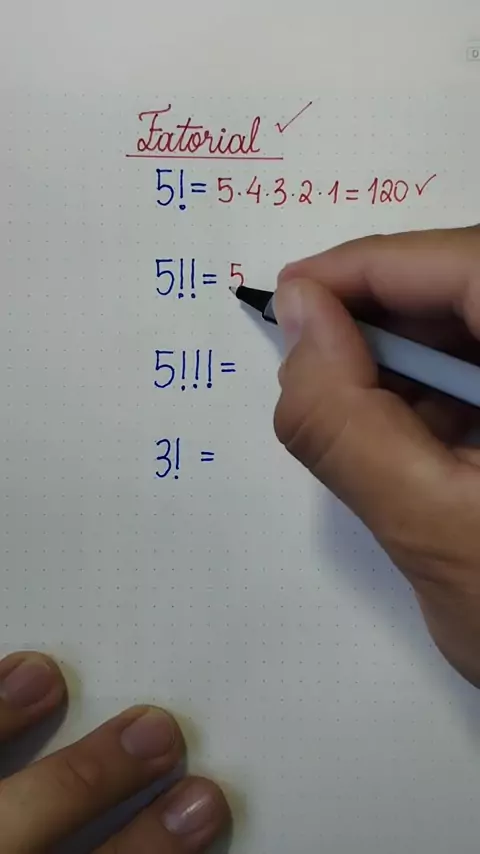 Fatorial ✓
5! = 5·4·3·2·1 = 120 ✓
5!! = 5
5!!! =
3! =